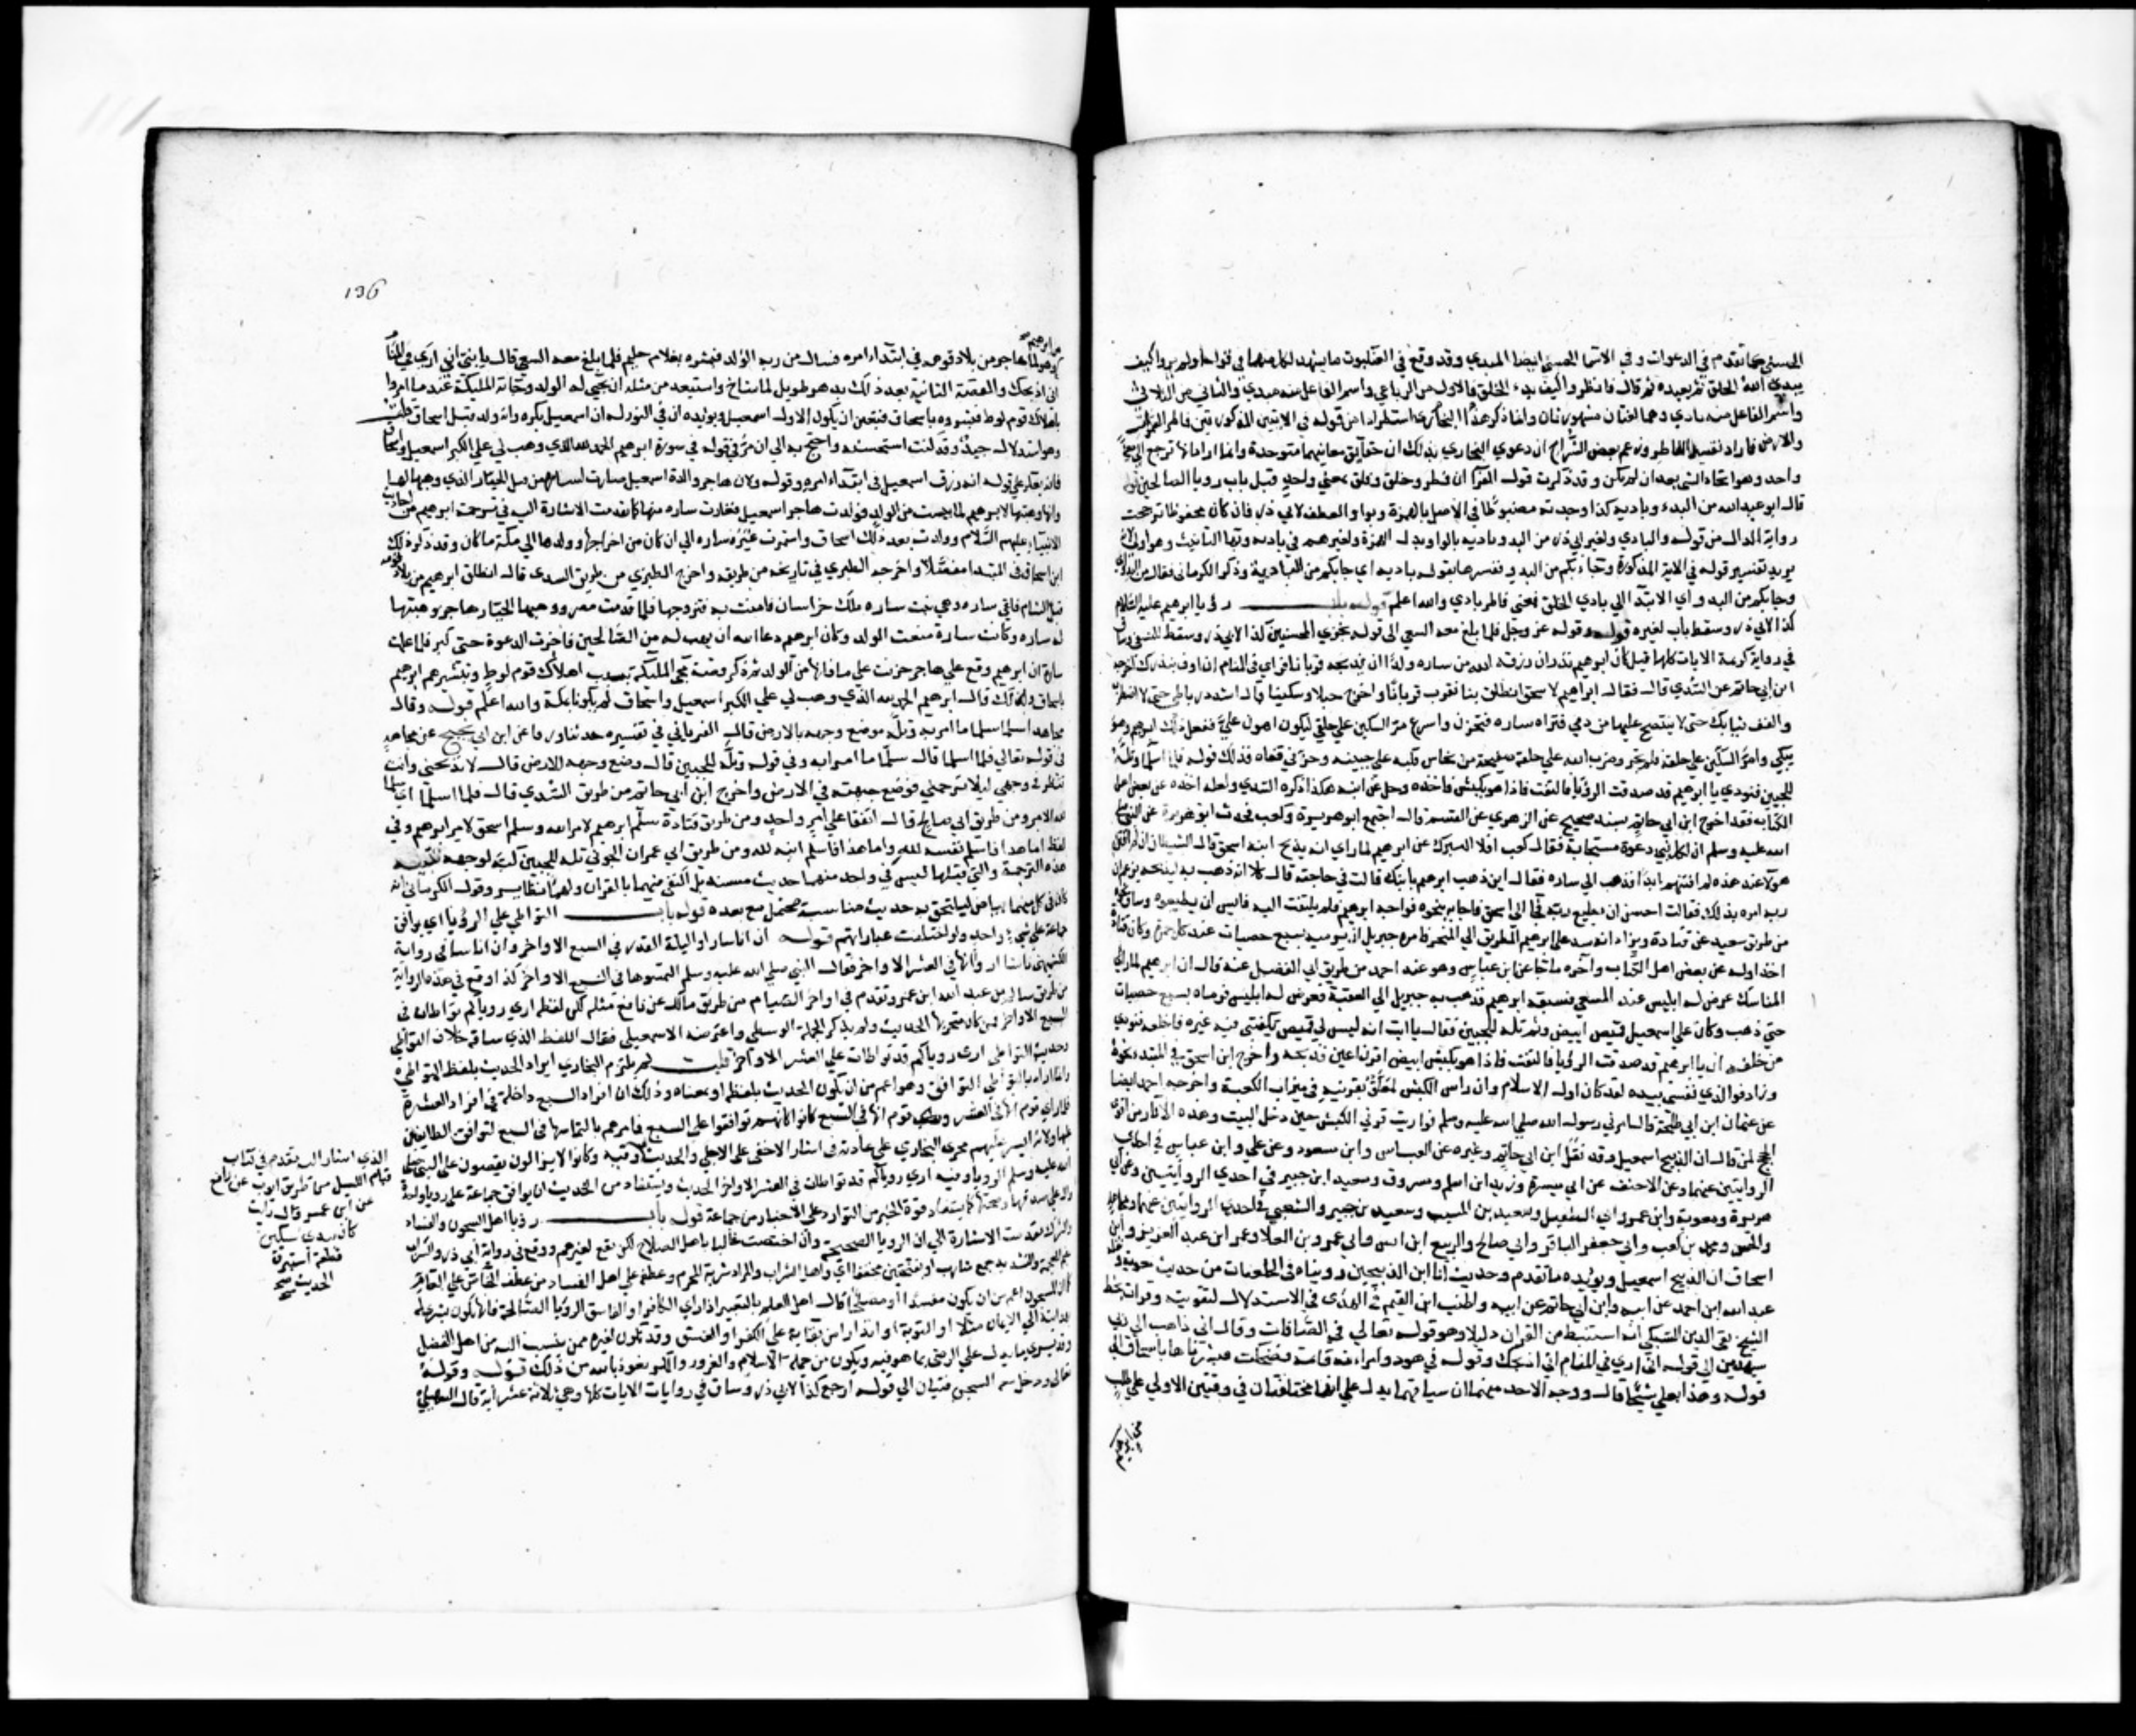 الحسنى كما تقدم في الدعوات وفي الاسما الحسنى ايضا المبدي وقد وقع في العنكبوت ما يشهد لكل منهما في قوله اولم يروا كيف
يبدئ الله الخلق ثم يعيده ثم قال فانظروا كيف بدء الخلق فالاول من الرباعي واسم الفاعل منه مبدئ والثاني من الثلاثي
واسم الفاعل منه بادي وهما لغتان مشهورتان وانما ذكر هذا البخاري استطرادا من قوله في الايتين المذكورتين فاطر السموات
والارض فاراد تفسير الفاطر وزعم بعض الشراح ان دعوي البخاري بذلك ان حقايق معانيها متوحدة وانما اراد انها ترجع الي معني
واحد وهو ايجاد الشي بعد ان لم يكن وقد ذكرت قول الفرا ان فطر وخلق وفلق بمعني واحد قبل باب رويا الصالحين قوله
قال ابو عبدالله من البدء وبادية كذا وجدته مضبوطا في الاصل بالهمزة وبواو العطف لابي ذر فان كان محفوظا ترجحت
رواية الدال من قوله والبادي ولغير ابي ذر من البدو وبادية بالواو بدل الهمزة ولغيرهم في بادية وبها التانيث وهو اولي لانه
يريد تفسير قوله في الاية المذكورة وجا بكم من البدو وفسرها بقوله بادية اي جا بكم من البادية وذكر الكرماني فقال
وجا بكم من البدو اي الابتدا الي بادي الخلق فمعني فاطر بادي والله اعلم قوله باب رويا ابراهيم عليه السلام
كذا لابي ذر وسقط باب لغيره قوله وقوله عز وجل فلما بلغ معه السعي الى قوله نجزي المحسنين كذا لابي ذر وسقط للنسفي وساق
في رواية كريمة الايات كلها قيل كان ابرهيم نذر ان رزقه الله من ساره ولدا ان يذبحه قربانا فراي في المنام ان اوف بنذرك اخرجه
ابن ابي حاتم عن السدي قال فقال ابراهيم لاسحق انطلق بنا نقرب قربانا واخذ حبلا وسكينا قال اشدد رباطي حتى لا اضطرب
واكفف ثيابك حتى لا ينتضح عليها من دمي فتراه ساره فتحزن واسرع مر السكين علي حلقي ليكون اهون علي ففعل ذلك ابرهيم وهو
يبكي وامر السكين علي حلقه فلم تحز وضرب الله علي حلقه صفيحة من نحاس فكبه علي جبينه وحز في قفاه فذلك قوله فلما اسلما وتله
للجبين فنودي يا ابرهيم قد صدقت الرؤيا فالتفت فاذا هو بكبش فاخذه وحل عن ابنه هكذا ذكره السدي ولعله اخذه عن بعض اهل
الكتاب فقد اخرج ابن ابي حاتم بسند صحيح عن الزهري عن القسم قال اجتمع ابو هريرة وكعب فحدث ابو هريرة عن النبي صلى
الله عليه وسلم ان لكل نبي دعوة مستجابة فقال كعب افلا اخبرك عن ابرهيم لما راي انه يذبح ابنه اسحق قال الشيطان ان لم افتن
هولا عند هذه لم افتنهم ابدا فذهب الي ساره فقال اين ذهب ابرهيم بابنك قالت في حاجته قال كلا انه ذهب به ليذبحه يزعم ان
ربه امره بذلك فقالت احسن ان يطيع ربه فجا الى اسحق فاجابه بنحوه فواجه ابرهيم فلم يلتفت اليه فايس ان يطيعوه وساق نحوه
من طريق سعيد عن قتادة وزاد انه سد على ابرهيم الطريق الي المنحر فامره جبريل ان يرميه بسبع حصيات عند كل جمرة وكان قتادة
اخذ اوله عن بعض اهل الكتاب وآخره مما جا عن ابن عباس وهو عند احمد من طريق ابي الطفيل عنه قال ان ابرهيم لما راي
المناسك عرض له ابليس عند المسعي فسبقه ابرهيم فذهب به جبريل الي العقبة فعرض له ابليس فرماه بسبع حصيات
حتي ذهب وكان علي اسمعيل قميص ابيض وثم تله للجبين فقال يا ابت انه ليس لي قميص تكفنني فيه غيره فاخلعه فنودي
من خلفه ان يا ابرهيم قد صدقت الرؤيا فالتفت فاذا هو بكبش ابيض اقرن اعين فذبحه واخرج ابن اسحق في المبتدا نحوه
وزاد فوالذي نفسي بيده لقد كان اول الاسلام وان راس الكبش لمعلق بقرنيه في ميزاب الكعبة واخرجه احمد ايضا
عن عثمان ابن ابي طلحة قال امرني رسول الله صلى الله عليه وسلم فواريت قرني الكبش حين دخل البيت وهذه الآثار من اقوى
الحجج لمن قال ان الذبيح اسمعيل وقد نقل ابن ابي حاتم وغيره عن العباس وابن مسعود وعن علي وابن عباس في احدي
الروايتين عنهما وعن الاحنف عن ابي ميسرة وزيد ابن اسلم ومسروق وسعيد ابن جبير في احدي الروايتين وعن ابي
هريرة ومعوية وابن عمر وابي الطفيل وسعيد بن المسيب وسعيد بن جبير والشعبي في احدي الروايتين عنهما ومجاهد
والحسن ومحمد بن كعب وابي جعفر الباقر وابي صالح والربيع ابن انس وابي عمرو بن العلا وعمر ابن عبد العزيز وابن
اسحاق ان الذبيح اسمعيل ويؤيده ما تقدم وحديث انا ابن الذبيحين رويناه في الخلعيات من حديث معوية ونقله
عبد الله ابن احمد عن ابيه وابن ابي حاتم عن ابيه واطنب ابن القيم في الهدى في الاستدلال لتقويته وقرات بخط
الشيخ تقي الدين السبكي انه استنبط من القران دليلا وهو قوله تعالي في الصافات وقال اني ذاهب الى ربي
سيهدين الي قوله اني اري في المنام اني اذبحك وقوله في هود وامراته قائمة فضحكت فبشرناها باسحاق الي
قوله وهذا بعلي شيخا قال ووجه الاخذ منهما ان سياقهما يدل علي انهما قصتان مختلفتان في وقتين الاولي علي طلب
من ابرهيم
136
من ابرهيم
وهو لما هاجر من بلاد قومه في ابتداء امره فسال من ربه الولد فبشره بغلام حليم فلما بلغ معه السعي قال يا بني اني ارى في المنام
اني اذبحك والقصة الثانية بعد ذلك بدهر طويل لما شاخ واستبعد من مثله ان يجي له الولد وجاته الملايكة عند ما امروا
باهلاك قوم لوط فبشروه باسحاق فتعين ان يكون الاول اسمعيل ويؤيده ان في التوراة ان اسمعيل بكره وانه ولد قبل اسحاق قلت
وهو استدلال جيد وقد كنت استحسنه واحتج به الي ان مر بي قوله في سورة ابرهيم الحمد لله الذي وهب لي علي الكبر اسمعيل واسحاق
فانه يعكر علي قوله انه رزق اسمعيل في ابتداء امره وقوته لان هاجر والدة اسمعيل صارت لساره من قبل الجبار الذي وهبها لها
وانها وهبتها لابرهيم لما يئست من الولد فولدت هاجر اسمعيل فغارت ساره منها كما تقدمت الاشارة اليه في ترجمة ابرهيم من احاديث
الانبياء عليهم السلام وولدت بعد ذلك اسحاق واستمرت غيرة ساره الي ان كان من اخراجها وولدها الي مكة ما كان وقد ذكره لك
ابن اسحاق في المبتدا مفصلا واخرجه الطبري في تاريخه من طريقه واخرج الطبري من طريق السدي قال انطلق ابرهيم من بلاد قومه
قبل الشام فلقي ساره وهي بنت ملك حران فامنت به فتزوجها فلما قدمت مصر ووهبها الجبار هاجر وهبتها
له ساره وكانت سارة منعت الولد وكان ابرهيم دعا الله ان يهب له من الصالحين فاخرت الدعوة حتى كبر فلما علمت
سارة ان ابرهيم وقع علي هاجر حزنت علي ما فاتها من الولد ثم ذكر قصة مجي الملايكة بسبب اهلاك قوم لوط وتبشيرهم ابرهيم
باسحاق ولذلك قال ابرهيم الحمد لله الذي وهب لي علي الكبر اسمعيل واسحاق لم يكونا بمكة والله اعلم قوله وقال
مجاهد اسلما سلما ما امر به وتله وضع وجهه بالارض قال الفريابي في تفسيره حدثنا ورقا عن ابن ابي نجيح عن مجاهد
في قوله تعالي فلما اسلما قال سلما ما امرا به وفي قوله وتله للجبين قال وضع وجهه للارض قال لا تذبحني وانت
تنظر في وجهي ليلا ترحمني فوضع جبهته في الارض واخرج ابن ابي حاتم من طريق السدي قال فلما اسلما اي سلما
لله الامر ومن طريق ابي صالح قال اتفقا علي امر واحد ومن طريق قتادة سلم ابرهيم لامر الله وسلم اسحق لامر ابرهيم وفي
لفظ اما هذا فاسلم نفسه لله واما هذا فاسلم ابنه لله ومن طريق ابي عمران الجوني تله للجبين كبه لوجهه تنبيه
هذه الترجمة والتي قبلها ليس في واحد منهما حديث مسند بل اكتفى فيهما بالقران ولهما نظاير وقول الكرماني انه
كان في كل منهما بياض ليلحق به حديث مناسبة محتمل مع بعده قوله باب التواطي علي الرؤيا اي توافق
جماعة علي شي واحد ولو اختلفت عباراتهم قوله ان اناسا اروا ليلة القدر في السبع الاواخر وان اناسا في رواية
الكشميهني ناسا اروا انها في العشر الاواخر فقال النبي صلي الله عليه وسلم التمسوها في السبع الاواخر كذا وقع في هذه الرواية
من طريق سالم بن عبد الله ابن عمر وتقدم في اواخر الصيام من طريق مالك عن نافع مثله لكن لفظه اري روياكم تواطات في
السبع الاواخر فمن كان متحريها الحديث ولم يذكر الجملة الوسطي واعترضه الاسمعيلي فقال اللفظ الذي ساقه خلاف التواطي
وحديث التواطي ارى روياكم قد تواطات علي العشر الاواخر قلت لم يلتزم البخاري ايراد الحديث بلفظ التواطي
وانما اراد بالتواطي التوافق وهو اعم من ان يكون الحديث بلفظه او بمعناه وذلك ان افراد السبع داخلة في افراد العشر
فلما راي قوم انها في العشر وقوم انها في السبع كانوا كانهم توافقوا على السبع فامرهم بالتماسها في السبع لتوافق الطايفتين
عليها ولانه ايسر عليهم فجري البخاري علي عادته في ايثار الاخفى على الاجلي والحديث وفيه وكانوا لا يزالون يقصون على النبي صلى
الله عليه وسلم الرويا وفيه اري روياكم قد تواطات في العشر الاواخر الحديث ويستفاد من الحديث ان توافق جماعة علي رويا واحدة
دال علي صدقها وصحتها كما يستفاد قوة الخبر من التوارد علي الاخبار من جماعة قوله باب رؤيا اهل السجون والفساد
والشراك تقدمت الاشارة الي ان الرويا الصحيحة وان اختصت غالبا باهل الصلاح لكن تقع لغيرهم ووقع في رواية ابي ذر والشراب
بضم المعجمة والتشديد جمع شارب او بفتحتين مخففا اي واهل الشراب والمراد شربة المحرم وعطفه علي اهل الفساد من عطف الخاص علي العام
كما ان المسجون اعم من ان يكون مفسدا او مصلحا قال اهل العلم بالتعبير اذا راي الكافر او الفاسق الرويا الصالحة فانها تكون بشري له
بهدايته الي الايمان مثلا او التوبة او انذارا من بقايه علي الكفر او الفسق وقد تكون لغيره ممن ينسب اليه من اهل الفضل
وقد يري ما يدل علي الرضي بما هو فيه ويكون من جملة الابتلا والغرور والمكر نعوذ بالله من ذلك قوله وقوله
تعالى ودخل معه السجن فتيان الي قوله ارجع كذا لابي ذر وساق في روايات الايات كلها وهي ثلاثة عشر اية قال السهيلي
الذي اشار اليه تقدم في كتاب
قيام الليل من طريق ايوب عن نافع
عن ابن عمر قال رايت
كان بيدي
قطعة استبرق
الحديث صح